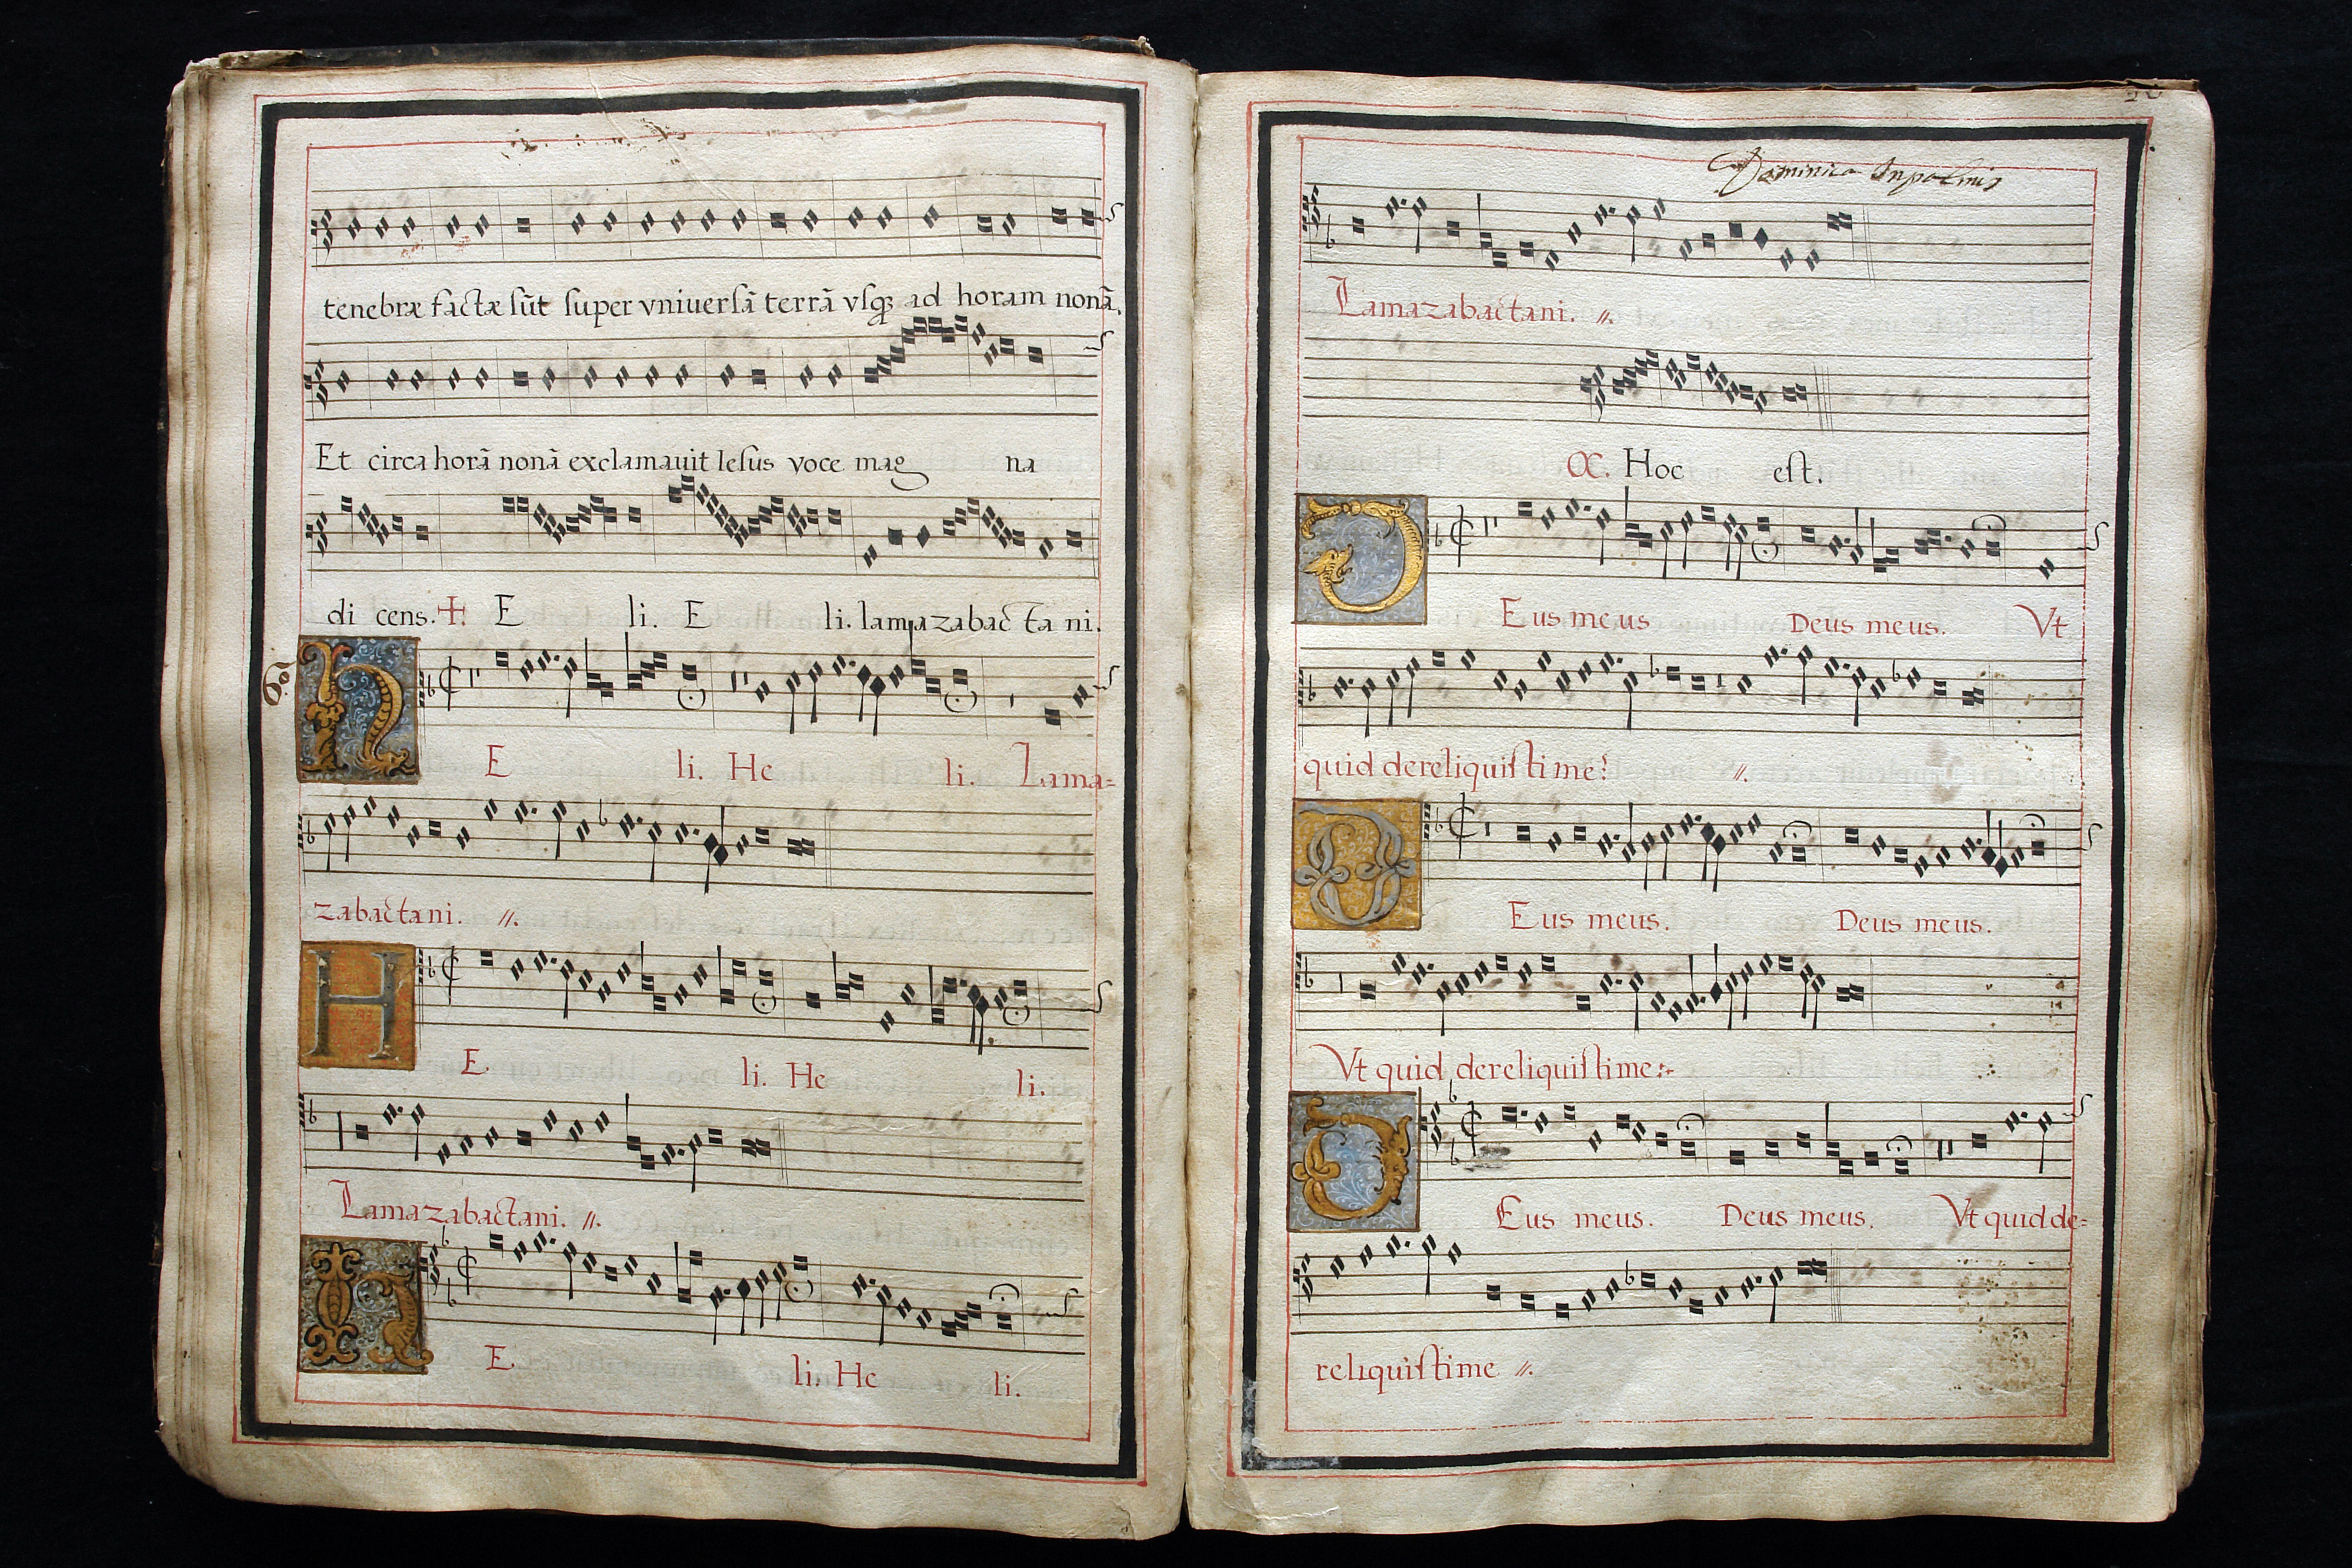 tenebræ factæ sũt super vniuersã terrã vsq; ad horam nonã.
Et circa horã nonã exclamauit Iesus voce mag na
di cens. +. E li. E li. lamazabac ta ni.
H E li. He li. Lama=
zabactani. //.
H E. li. He li.
Lamazabactani. //.
H E. li. He li.
Dominica Inpalmis
Lamazabactani. //.
Hoc est.
D Eus meus Deus meus. Vt
quid dereliquisti me? //.
D Eus meus. Deus meus.
Vt quid dereliquisti me:
D Eus meus. Deus meus. Vt quid de=
reliquisti me //.